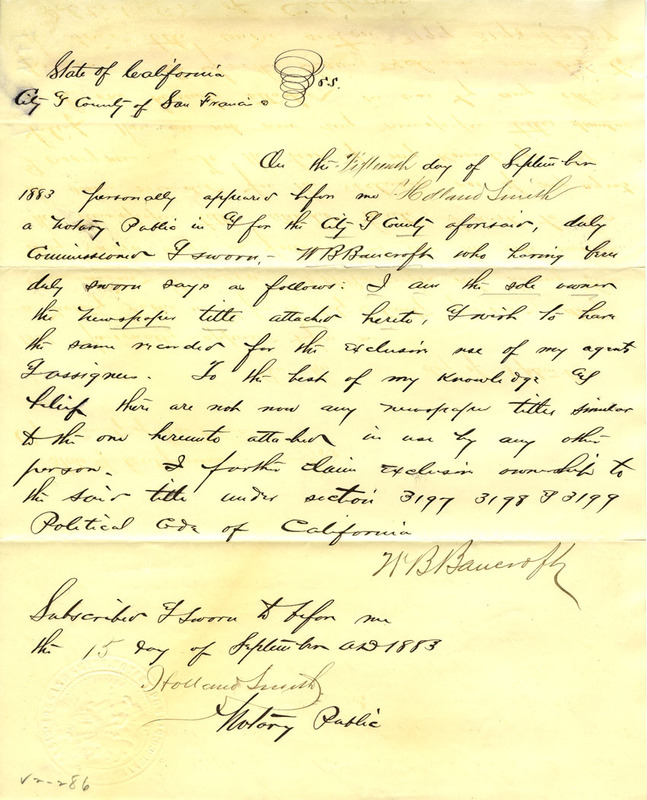 State of California
City & County of San Francisco ss.
On the Fifteenth day of September
1883 personally appeared before me Holland Smith
a Notary Public in & for the City & County aforesaid, duly
Commissioned & sworn,- W B Bancroft who having been
duly sworn says as follows: I am the sole owner
the newspaper title attached hereto, & wish to have
the same recorded for the exclusive use of my agents
& assignees. To the best of my knowledge &
belief there are not now any newspaper titles similar
to the one hereunto attached in use by any other
person. I further claim exclusive ownership to
the said title under section 3197 3198 & 3199
Political Code of California
W B Bancroft
Subscribed & sworn to before me
the 15 day of September AD 1883
Holland Smith
Notary Public
v2-286